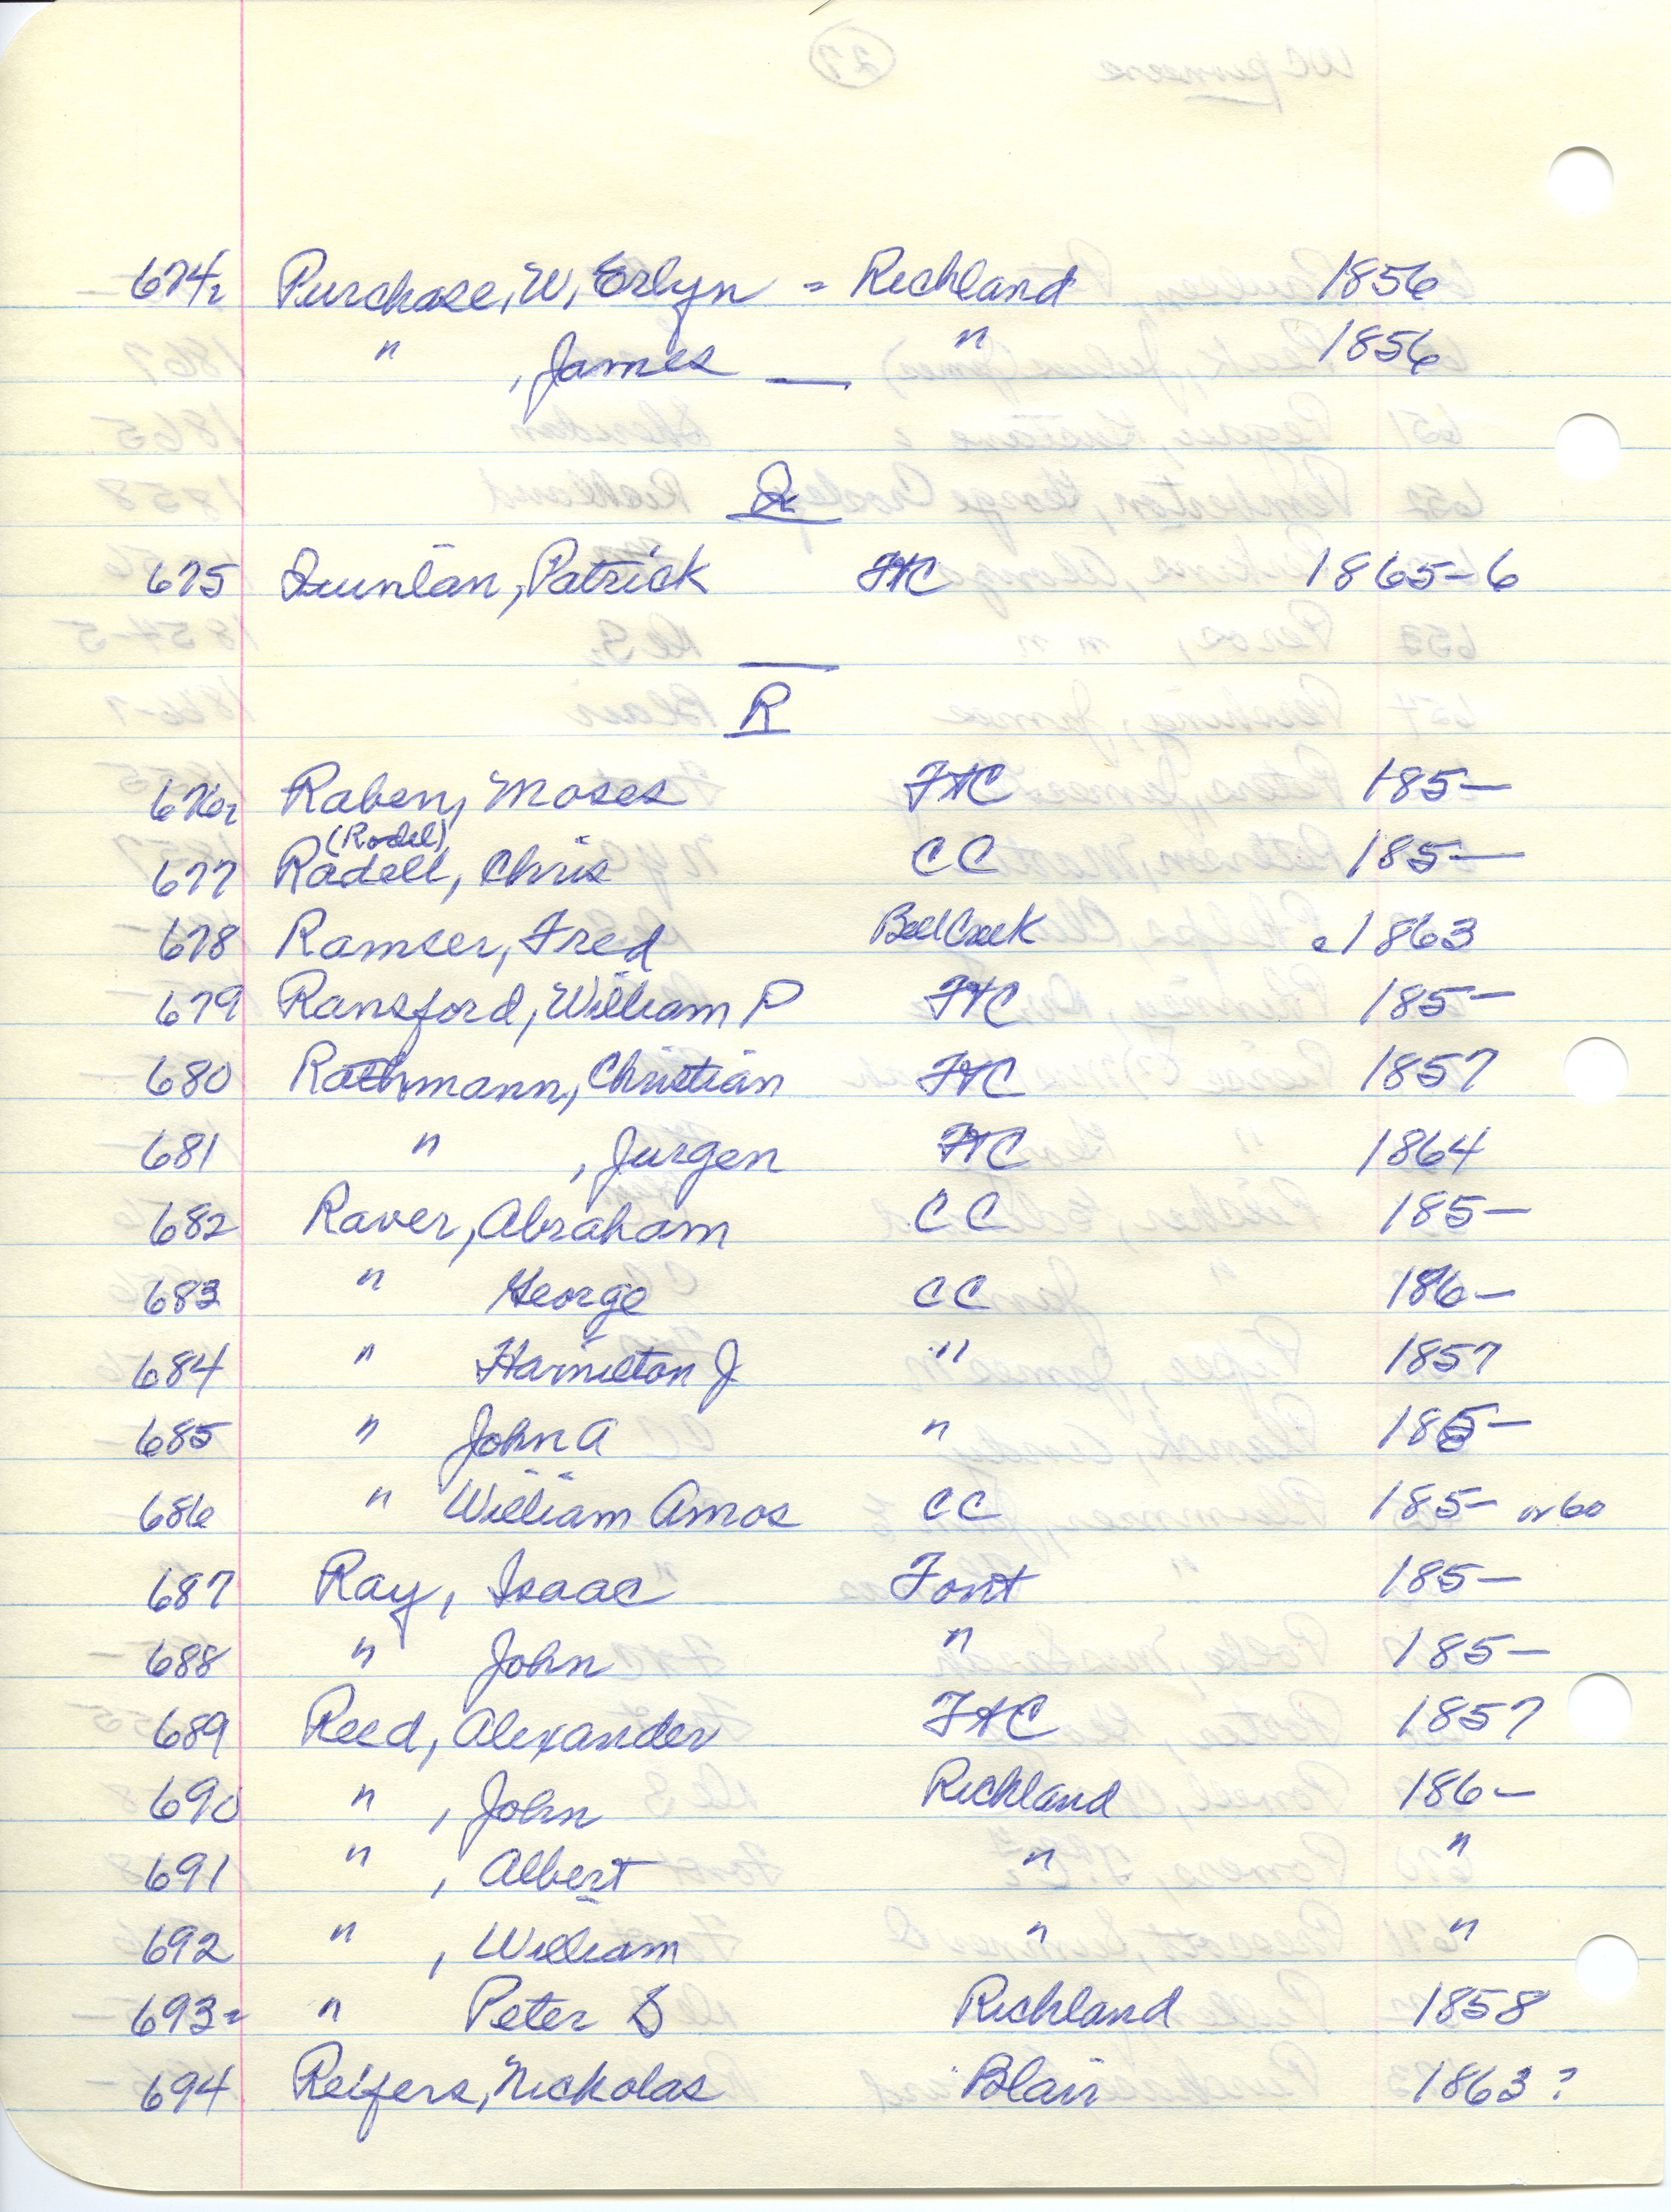 674 Purchase, W, Erlyn - Richland 1856
" , James — " 1856
Q
675 Quinlan, Patrick FtC 1865-6
R
676 Raben, Moses FtC 185—
(Rodel)
677 Radell, Chris CC 185—
678 Ramser, Fred Bell Creek c1863
679 Ransford, William P FtC 185—
680 Rathmann, Christian FtC 1857
681 " , Jurgen FtC 1864
682 Raver, Abraham CC 185—
683 " George CC 186—
684 " Hamilton J " 1857
685 " John A " 185—
686 " William Amos CC 185— or 60
687 Ray, Isaac Font 185—
688 " John " 185—
689 Reed, Alexander FtC 1857
690 " , John Richland 186—
691 " , Albert " "
692 " , William " "
693 " Peter S Richland 1858
694 Reifers, Nickolas Blair 1863?